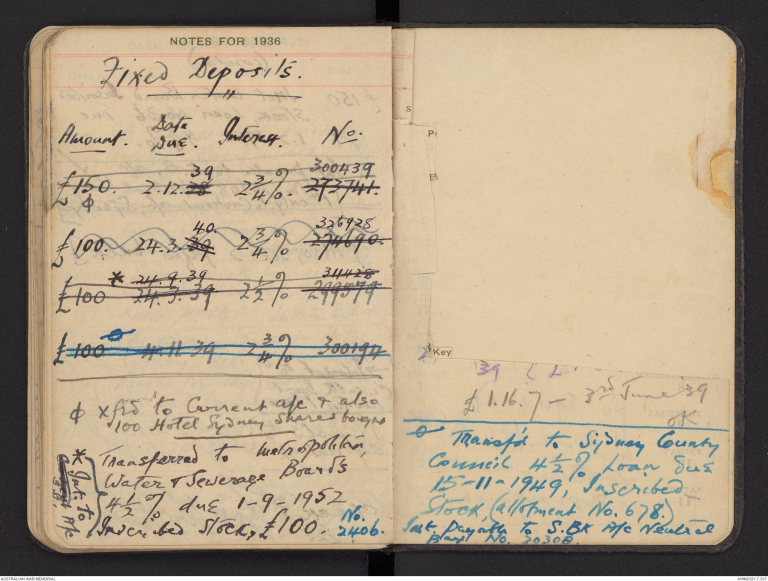 NOTES FOR 1936
Fixed Deposits.
Amount. Date Due. Interest. No.
39 300439
£150. 2.12.38 2 3/4 %. 273741.
ϕ
40. 326928
£100. 24.3.39 2 3/4 % 274690.
* 24.9.39 31428
£100 24.3.39 2 1/2 % 299579
£100 4.11.39 2 3/4 % 300194
ϕ xfrd to Current a/c & also
100 Hotel Sydney Shares bought
* Transferred to Metropolitan
Water & Sewerage Boards
4 1/2 % due 1-9-1952
Inscribed Stock, £100. No. 2406.
* Int. to
Current A/c
S
Key
39
£1.16.7 — 3rd June '39
OK
Transf'd to Sydney County
Council 4 1/2 % Loan due
15-11-1949, Inscribed
Stock (allotment No. 678.)
Int. Payable to S. BK A/c Neutral
Bay No. 20308.
AUSTRALIAN WAR MEMORIAL